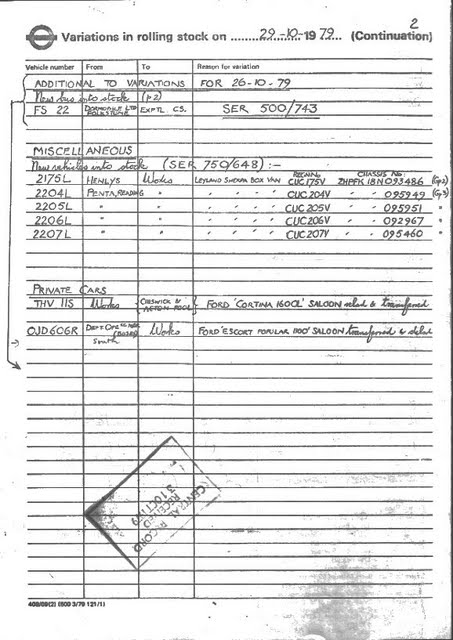 2
Variations in rolling stock on 29-10-1979 (Continuation)
Vehicle number From To Reason for variation
ADDITIONAL TO VARIATIONS FOR 26-10-79
New bus into stock (p2)
FS 22 DORMOBILE LTD FOLKESTONE EXPTL CS. SER 500/743
MISCELLANEOUS
New vehicles into stock (SER 750/648) :-
REG'N NO. CHASSIS NO.
2175L HENLYS Works LEYLAND SHERPA BOX VAN CUC 175V ZHPFK 18N 093486 (Gp2)
2204L PENTA, READING " " " " " CUC 204V " 095949 (Gp3)
2205L " " " " " " CUC 205V " 095951 "
2206L " " " " " " CUC 206V " 092967 "
2207L " " " " " " CUC 207V " 095460 "
PRIVATE CARS
THV 11S Works CHISWICK & ACTON POOL FORD 'CORTINA 1600L' SALOON & transferred
OJD 606R South Works FORD 'ESCORT POPULAR 1100' SALOON transferred &
CENTRAL RECORD
RECEIVED
31 OCT 1979
409/69(2) (500 3/79 121/1)